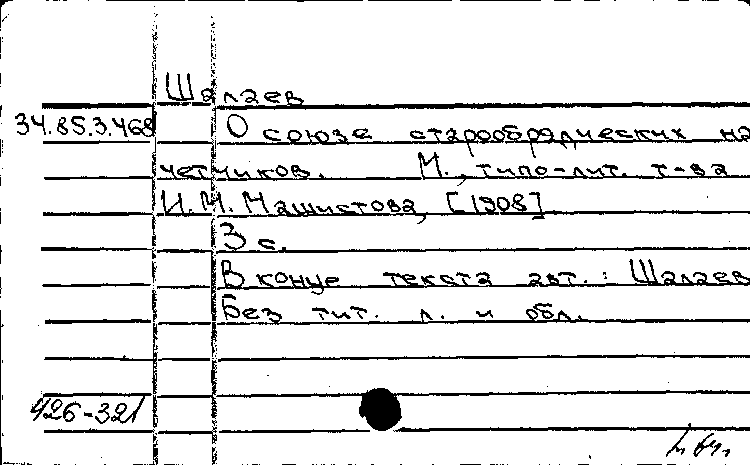 Шалаев
34.85.3.468 О союзе старообрядческих на
четчиков. М., типо-лит. т-ва
И.М. Машистова, [1908]
3 с.
В конце текста авт.: Шалаев
Без тит. л. и обл.
426-321